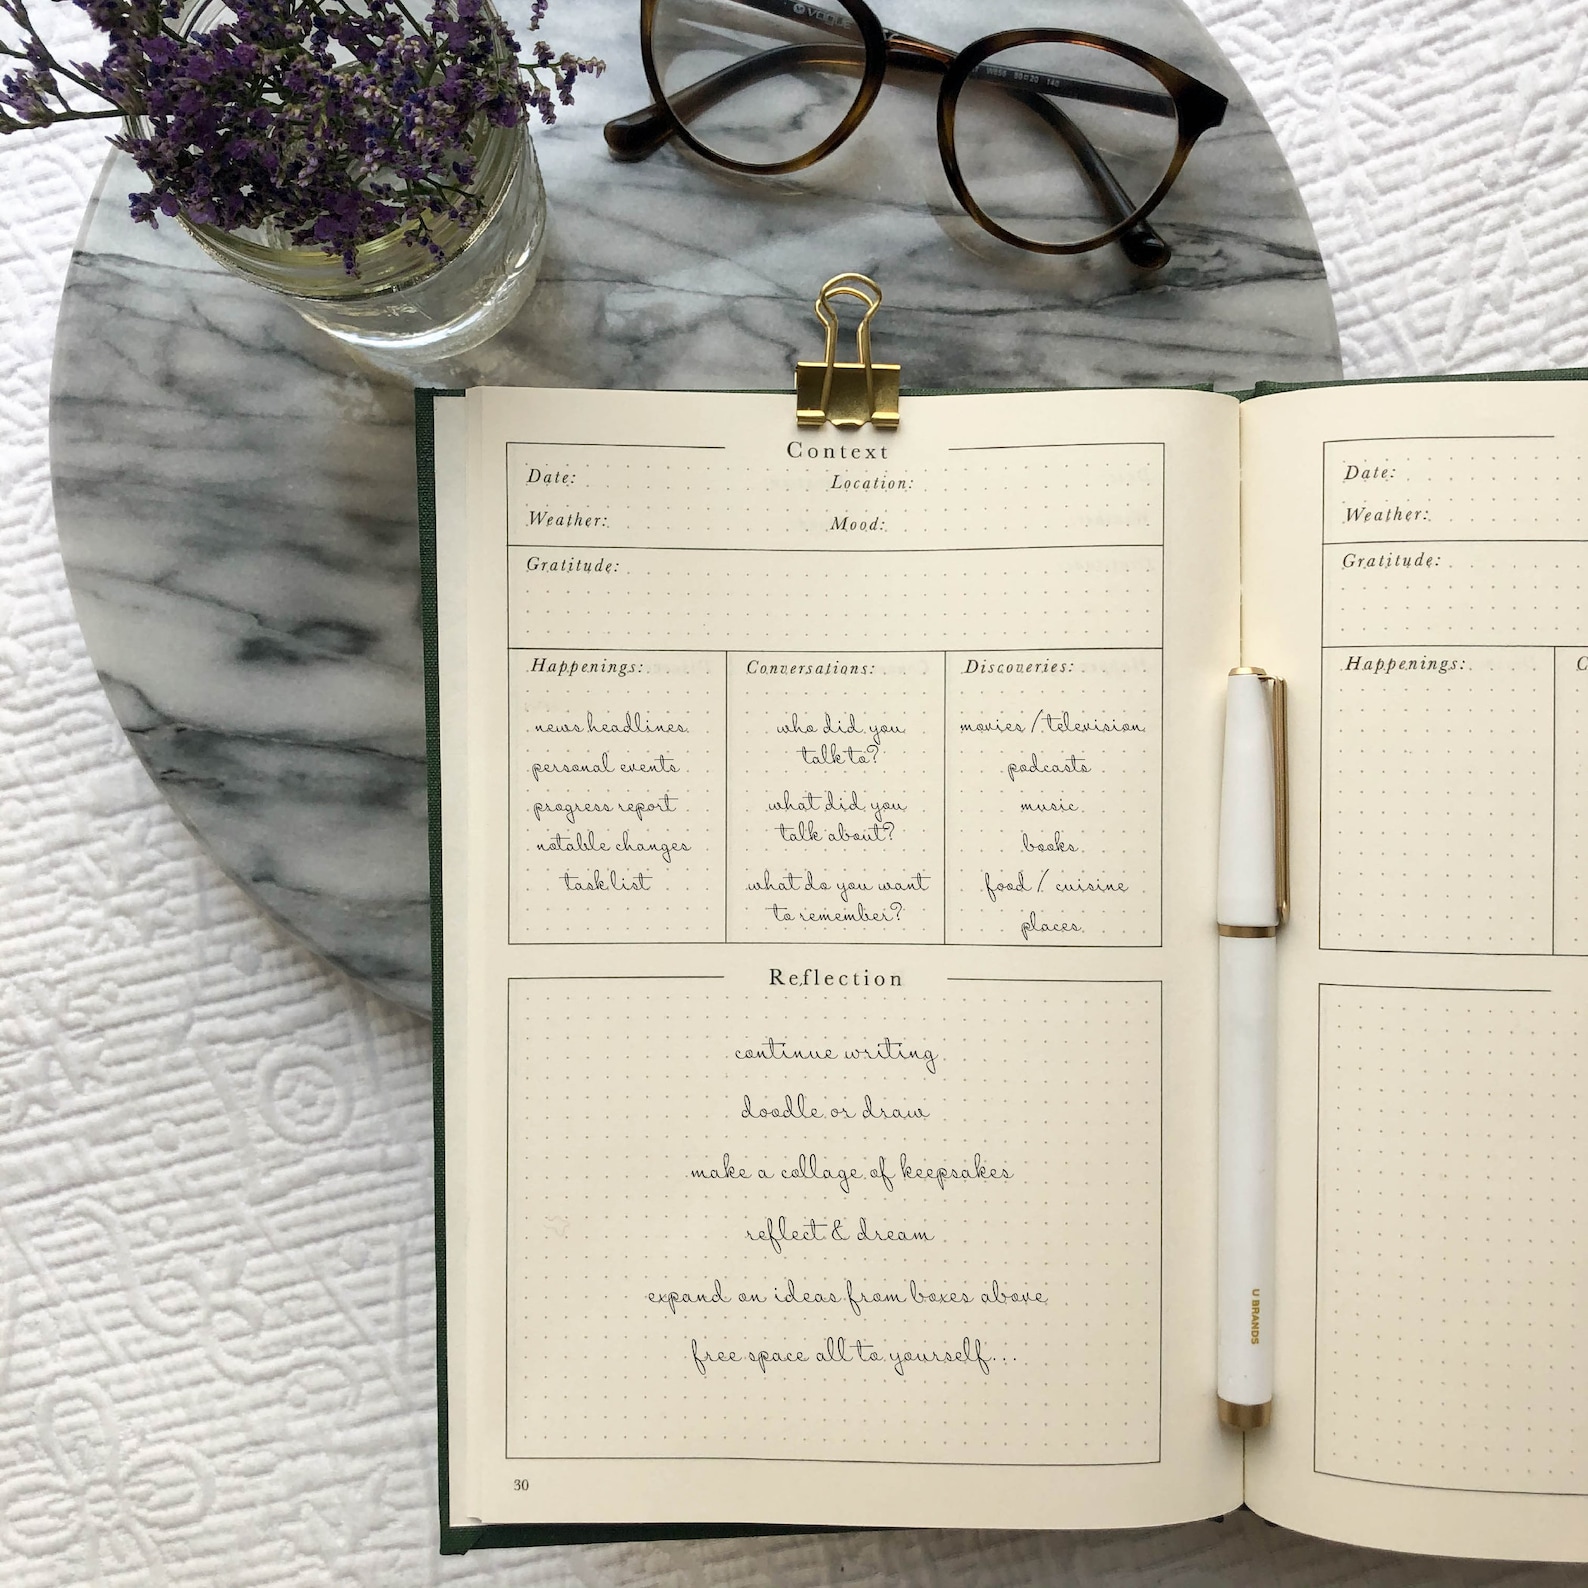 VOGUE
W656 50□20 140
Context
Date:
Location:
Weather:
Mood:
Gratitude:
Happenings:
news headlines
personal events
progress report
notable changes
task list
Conversations:
who did you
talk to?
what did you
talk about?
what do you want
to remember?
Discoveries:
movies / television
podcasts
music
books
food / cuisine
places
Reflection
continue writing
doodle or draw
make a collage of keepsakes
reflect & dream
expand on ideas from boxes above
free space all to yourself...
30
Date:
Weather:
Gratitude:
Happenings:
C
U BRANDS